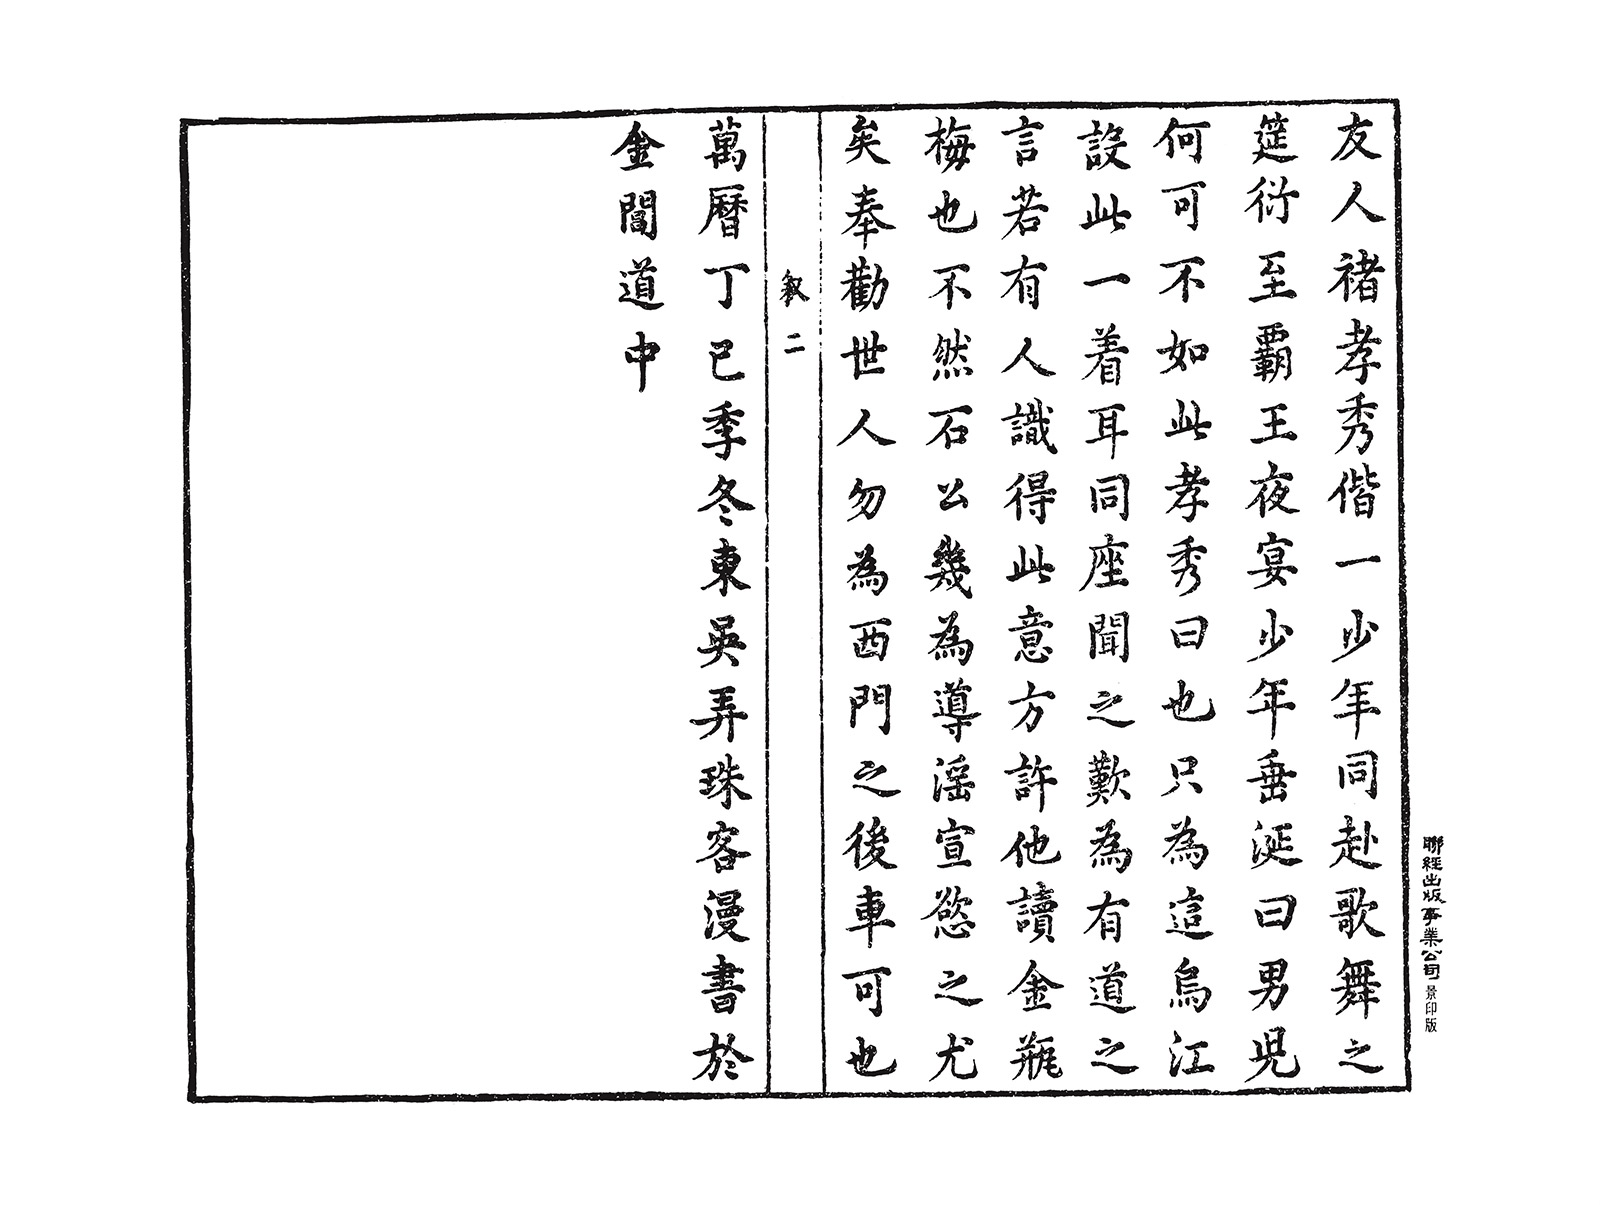 友人褚孝秀偕一少年同赴歌舞之
筵衍至覇王夜宴少年垂涎曰男児
何可不如此孝秀曰也只為這烏江
設此一着耳同座聞之歎為有道之
言若有人識得此意方許他讀金瓶
梅也不然石公幾為導淫宣慾之尤
矣奉勸世人勿為西門之後車可也
敘 二
萬曆丁巳季冬東吳弄珠客漫書於
金閶道中
聯經出版事業公司景印版